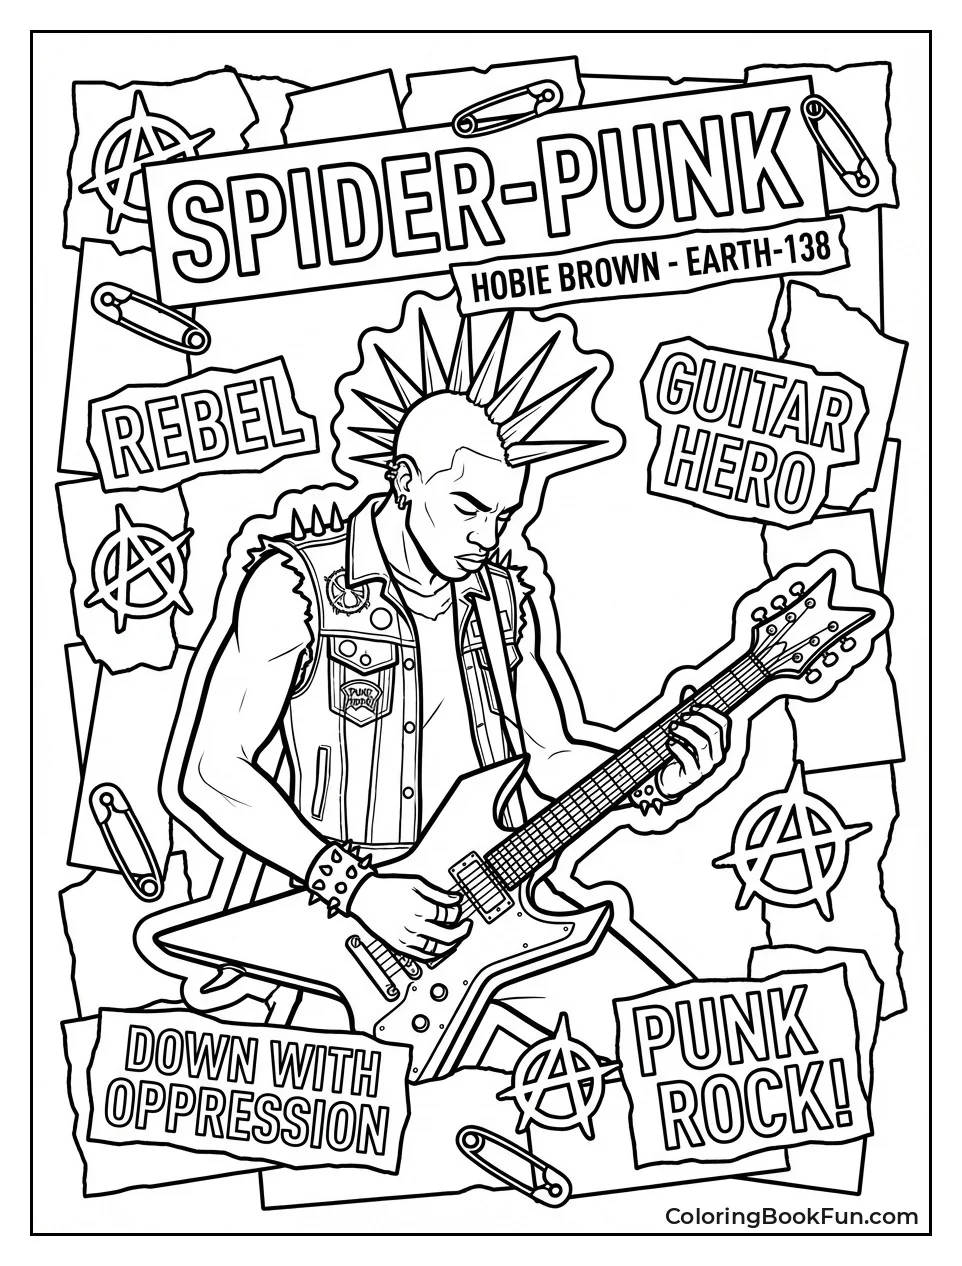 SPIDER-PUNK
HOBIE BROWN - EARTH-138
REBEL
GUITAR
HERO
DOWN WITH
OPPRESSION
PUNK
ROCK!
ColoringBookFun.com